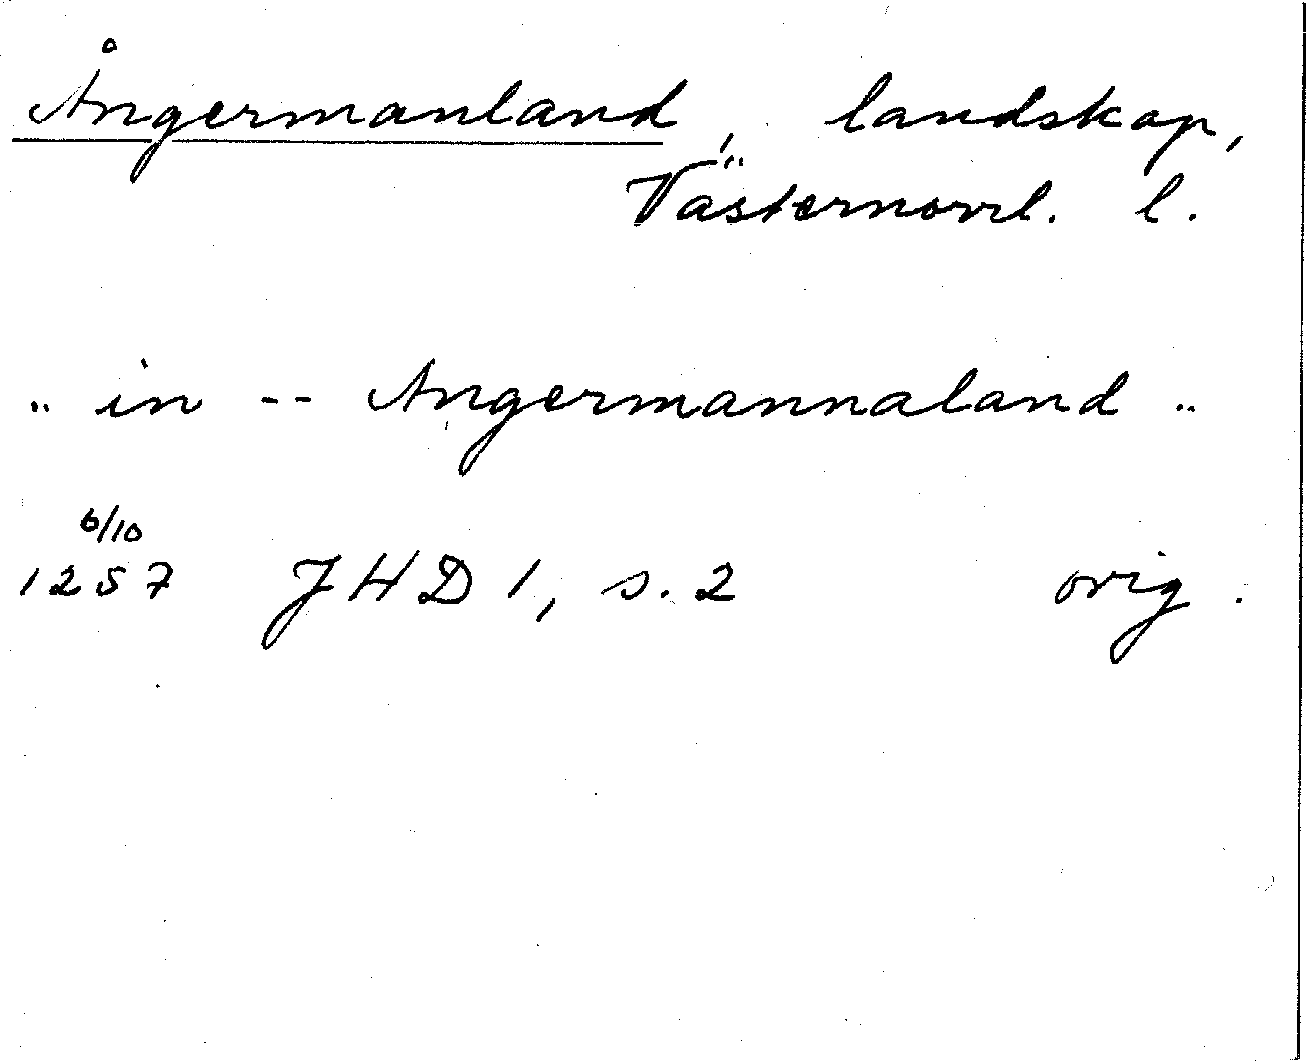 Ångermanland, landskap,
Västernorrl. l.
"in -- Angermannaland"
6/10
1257 JHD 1, s. 2 orig.